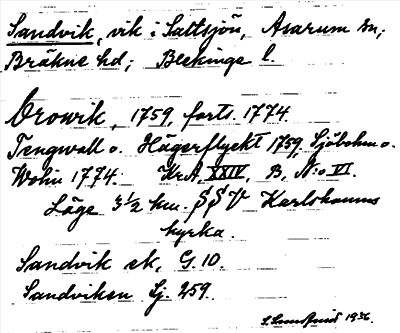 Sandvik, vik i Saltsjön, Asarum sn;
Bräkne hd; Blekinge l.
Orowik, 1759, forts. 1774.
Tengwall o. Hägerflyckt 1759, Sjöbohm o.
Wohn 1774. KrA, XXIV, B, N:o VI.
Läge 3½ km. SSV Karlshamns
kyrka.
Sandvik ek, G. 10.
Sandviken Sj. 259.
1936.